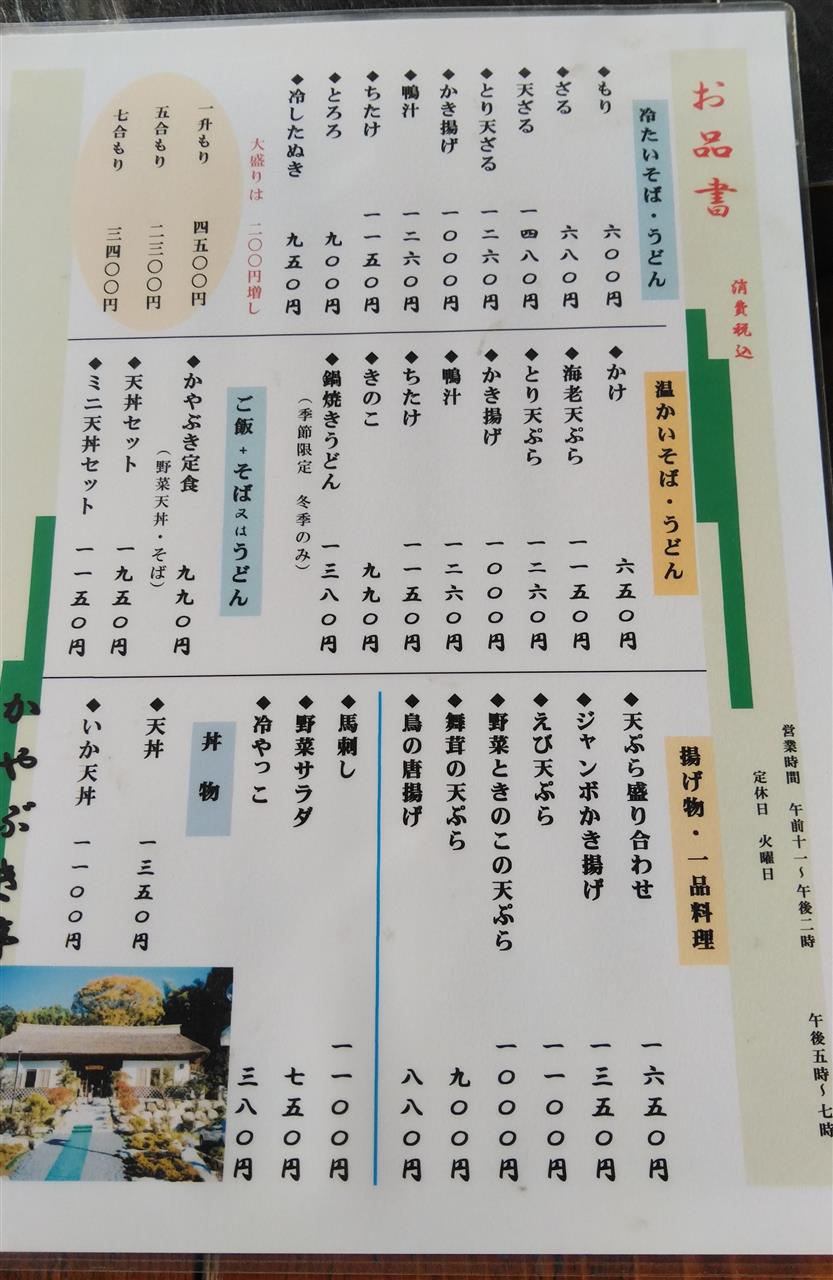 お品書
消費税込
営業時間 午前十一〜午後二時
午後五時〜七時
定休日 火曜日
冷たいそば・うどん
◆もり 六〇〇円
◆ざる 六八〇円
◆天ざる 一四八〇円
◆とり天ざる 一二六〇円
◆かき揚げ 一〇〇〇円
◆鴨汁 一二六〇円
◆ちたけ 一一五〇円
◆とろろ 九〇〇円
◆冷したぬき 九五〇円
大盛りは 二〇〇円増し
一升もり 四五〇〇円
五合もり 二三〇〇円
七合もり 三四〇〇円
温かいそば・うどん
◆かけ 六五〇円
◆海老天ぷら 一一五〇円
◆とり天ぷら 一二六〇円
◆かき揚げ 一〇〇〇円
◆鴨汁 一二六〇円
◆ちたけ 一一五〇円
◆きのこ 九九〇円
◆鍋焼きうどん 一三八〇円
（季節限定 冬季のみ）
ご飯+そば又はうどん
◆かやぶき定食 九九〇円
（野菜天丼・そば）
◆天丼セット 一九五〇円
◆ミニ天丼セット 一一五〇円
揚げ物・一品料理
◆天ぷら盛り合わせ 一六五〇円
◆ジャンボかき揚げ 一三五〇円
◆えび天ぷら 一一〇〇円
◆野菜ときのこの天ぷら 一〇〇〇円
◆舞茸の天ぷら 九〇〇円
◆鳥の唐揚げ 八八〇円
◆馬刺し 一一〇〇円
◆野菜サラダ 七五〇円
◆冷やっこ 三八〇円
丼物
◆天丼 一三五〇円
◆いか天丼 一一〇〇円
かやぶき亭